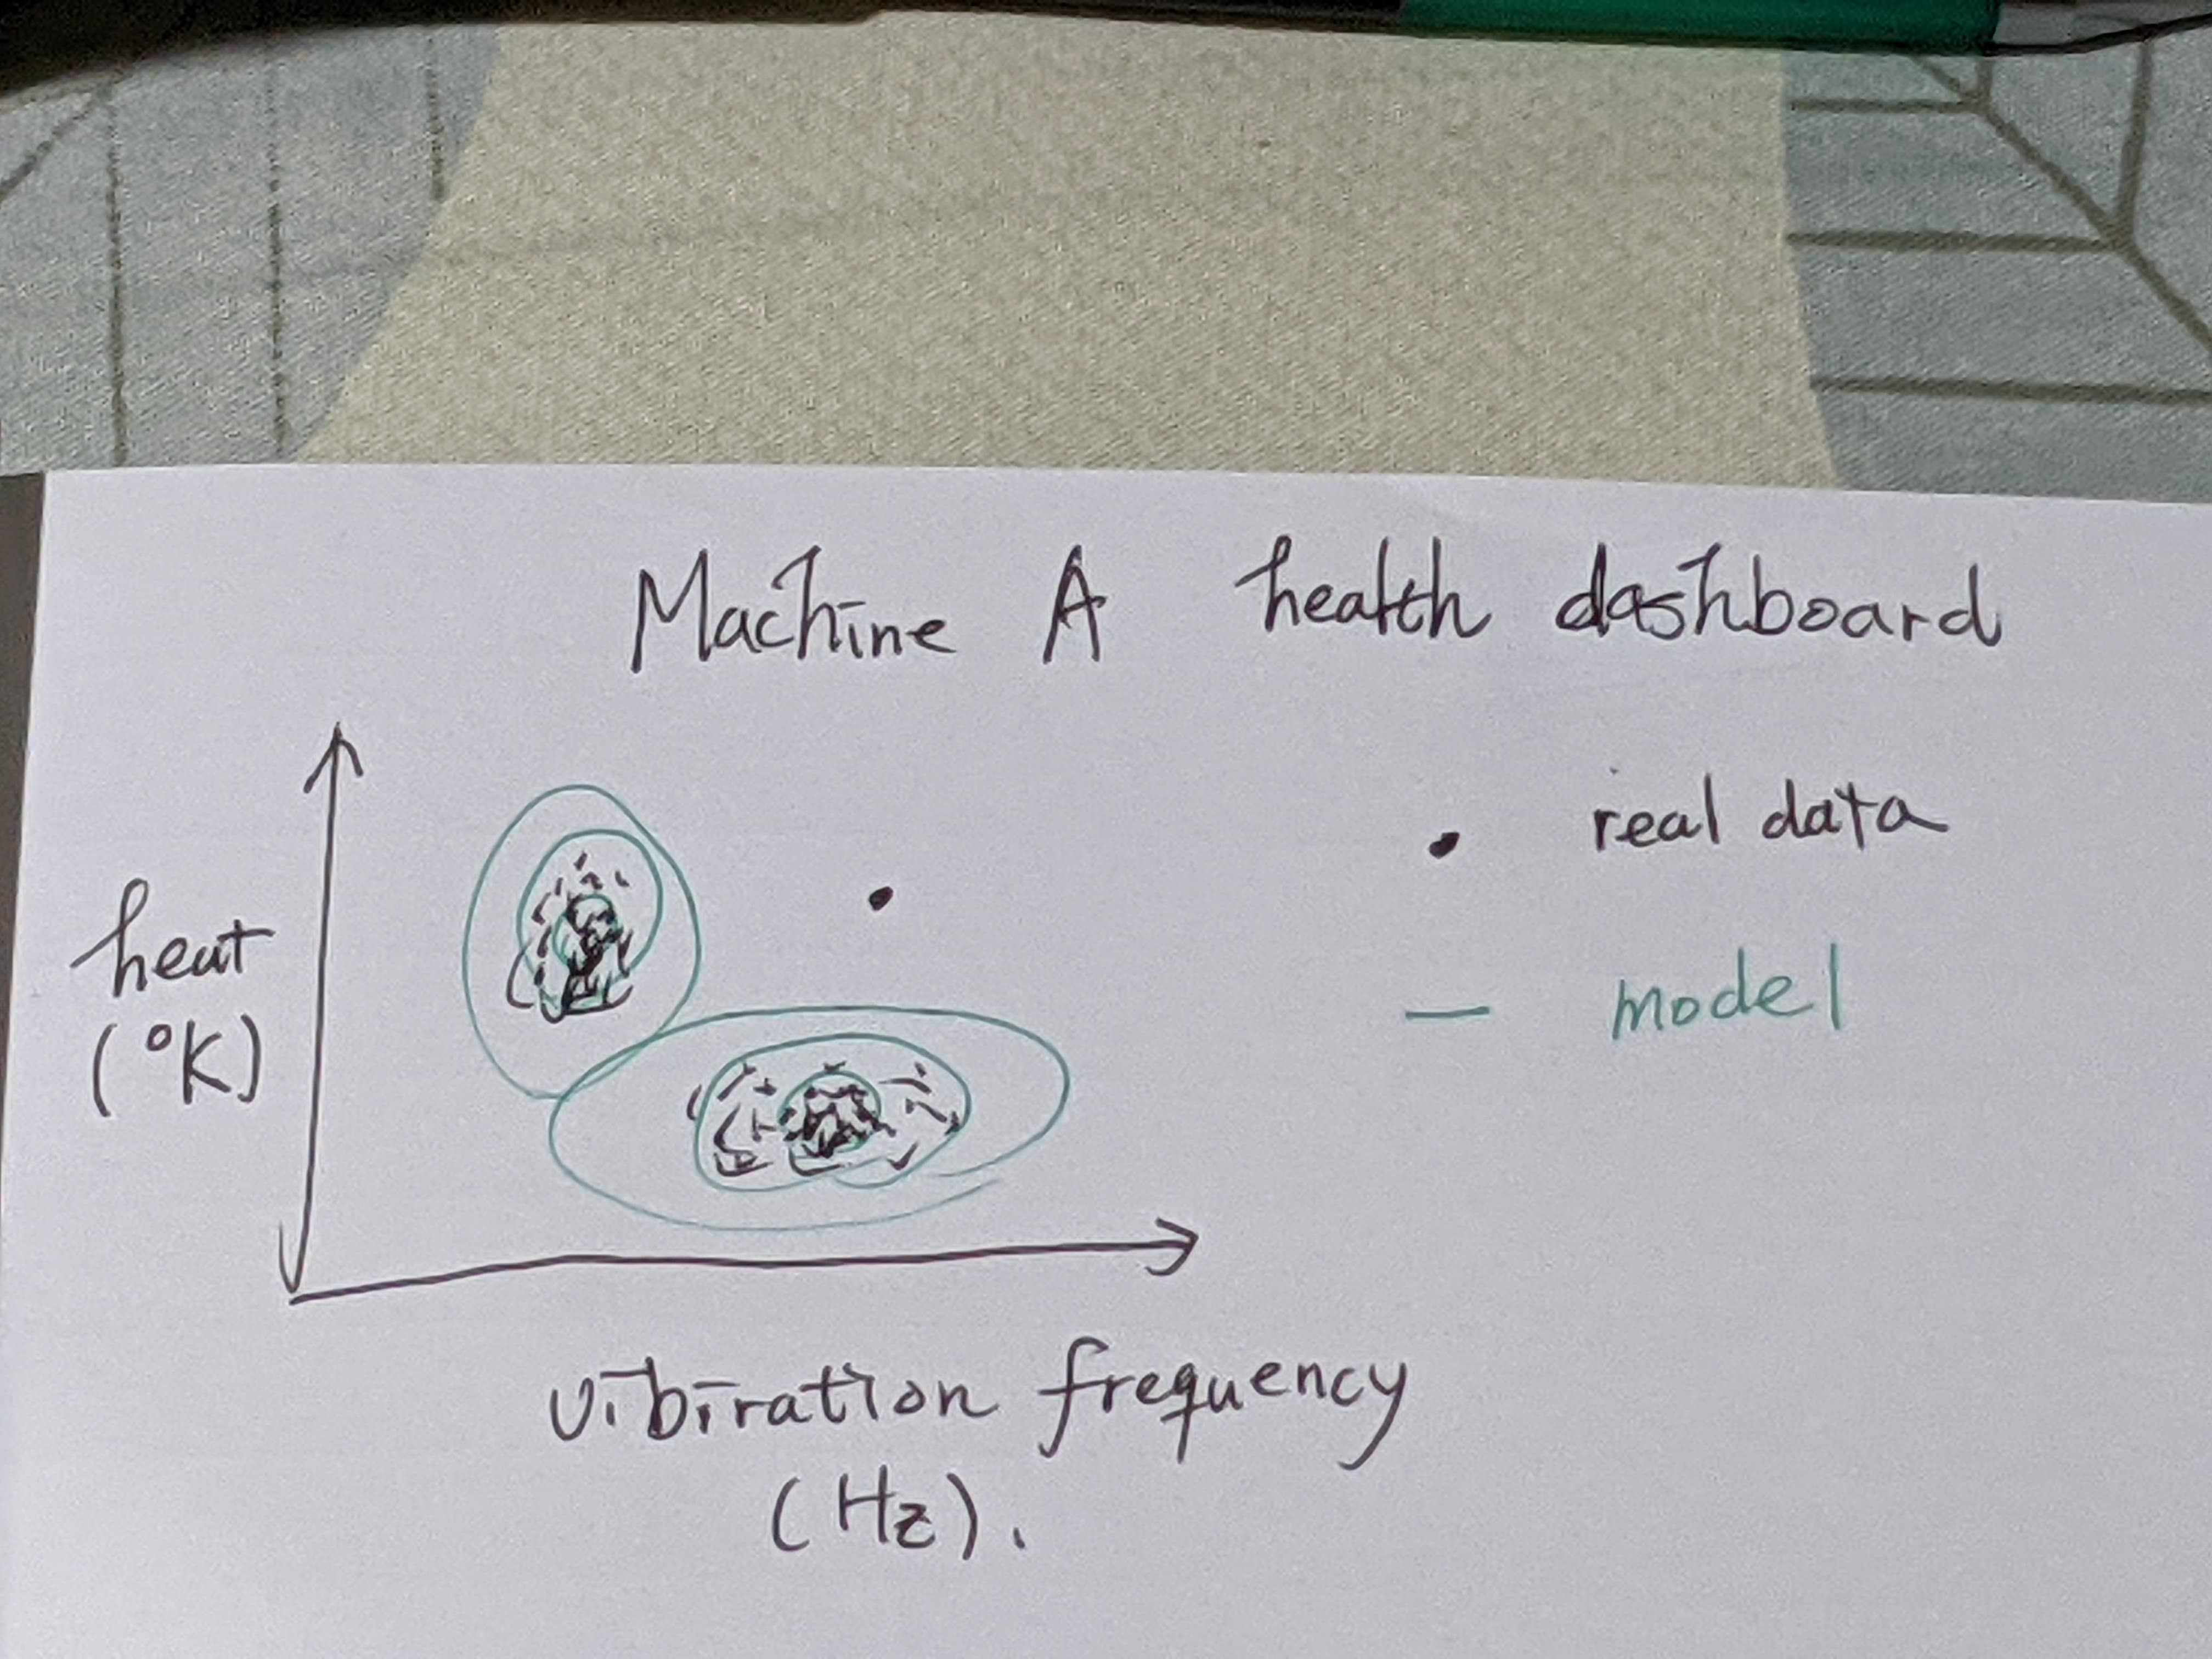 Machine A health dashboard
real data
model
heat
(°K)
vibiration frequency
(Hz).